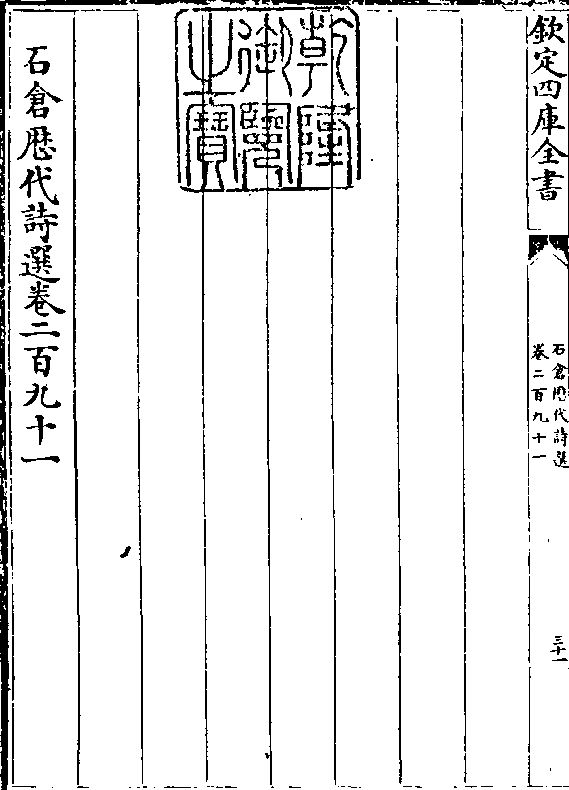 欽定四庫全書
石倉歴代詩選
卷二百九十一
三十一
乾隆
御覽
之寶
石倉歴代詩選卷二百九十一